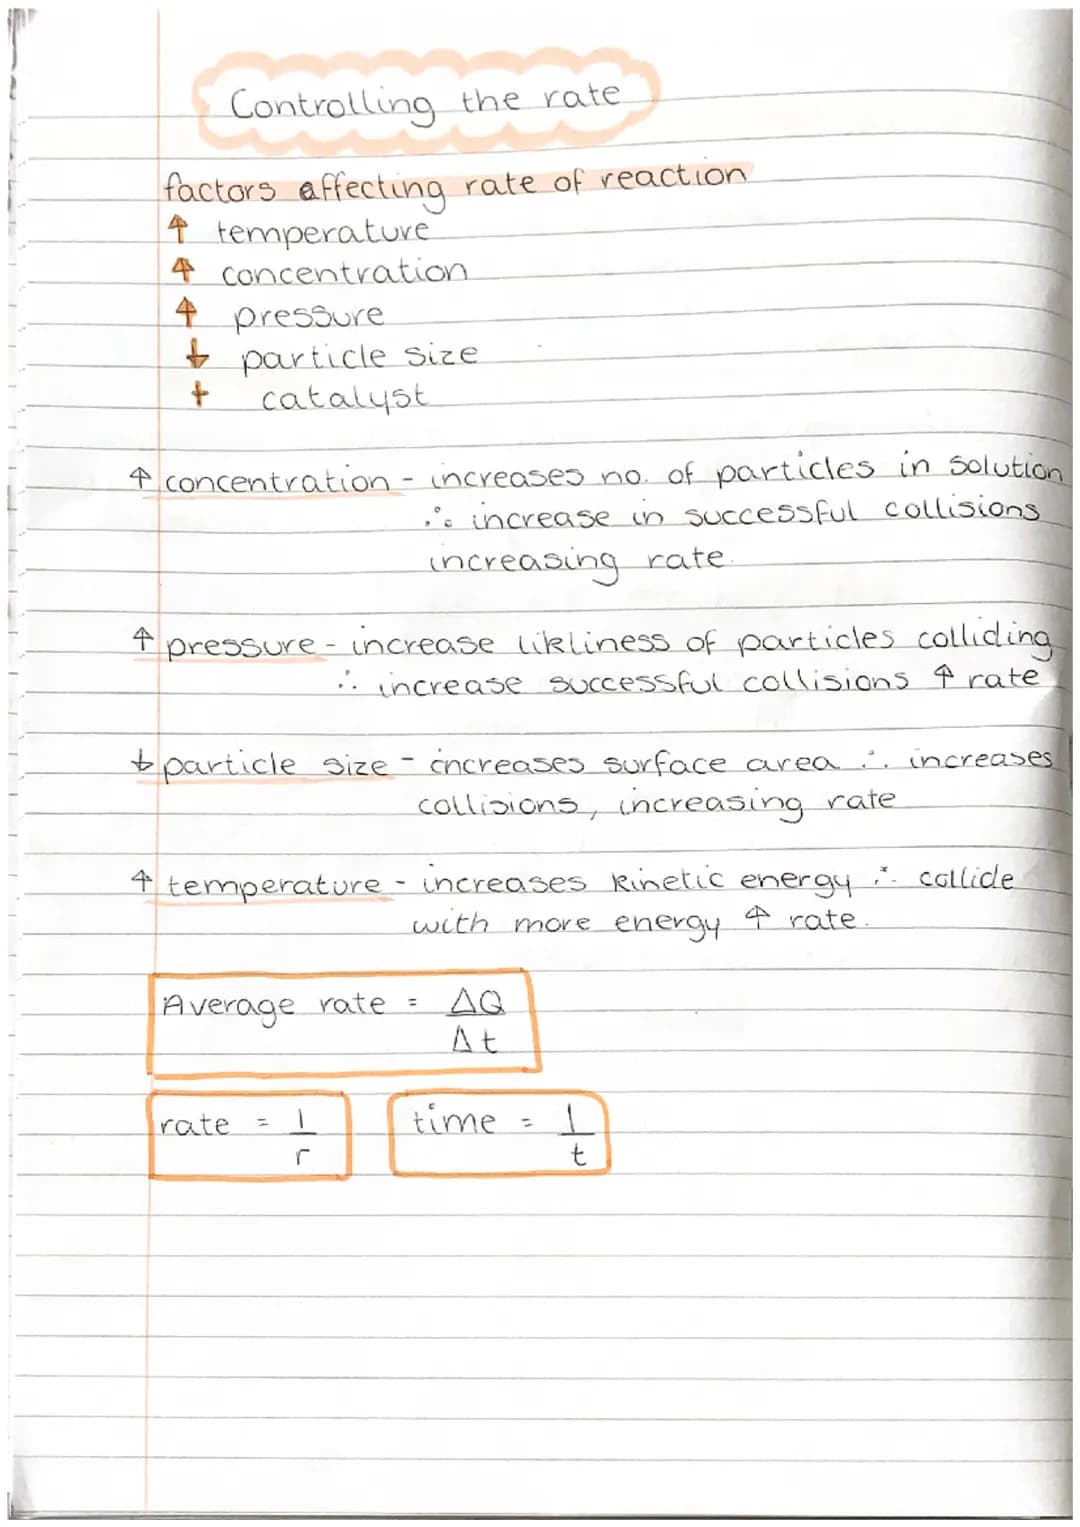 Controlling the rate
factors affecting rate of reaction
↑ temperature
↑ concentration
↑ pressure
↓ particle size
+ catalyst
↑ concentration - increases no. of particles in solution
∴ increase in successful collisions
increasing rate.
↑ pressure - increase likliness of particles colliding
∴ increase successful collisions ↑ rate
↓ particle size - increases surface area ∴ increases
collisions, increasing rate
↑ temperature - increases kinetic energy ∴ collide
with more energy ↑ rate.
Average rate = ΔQ
Δt
rate = 1
r
time = 1
t